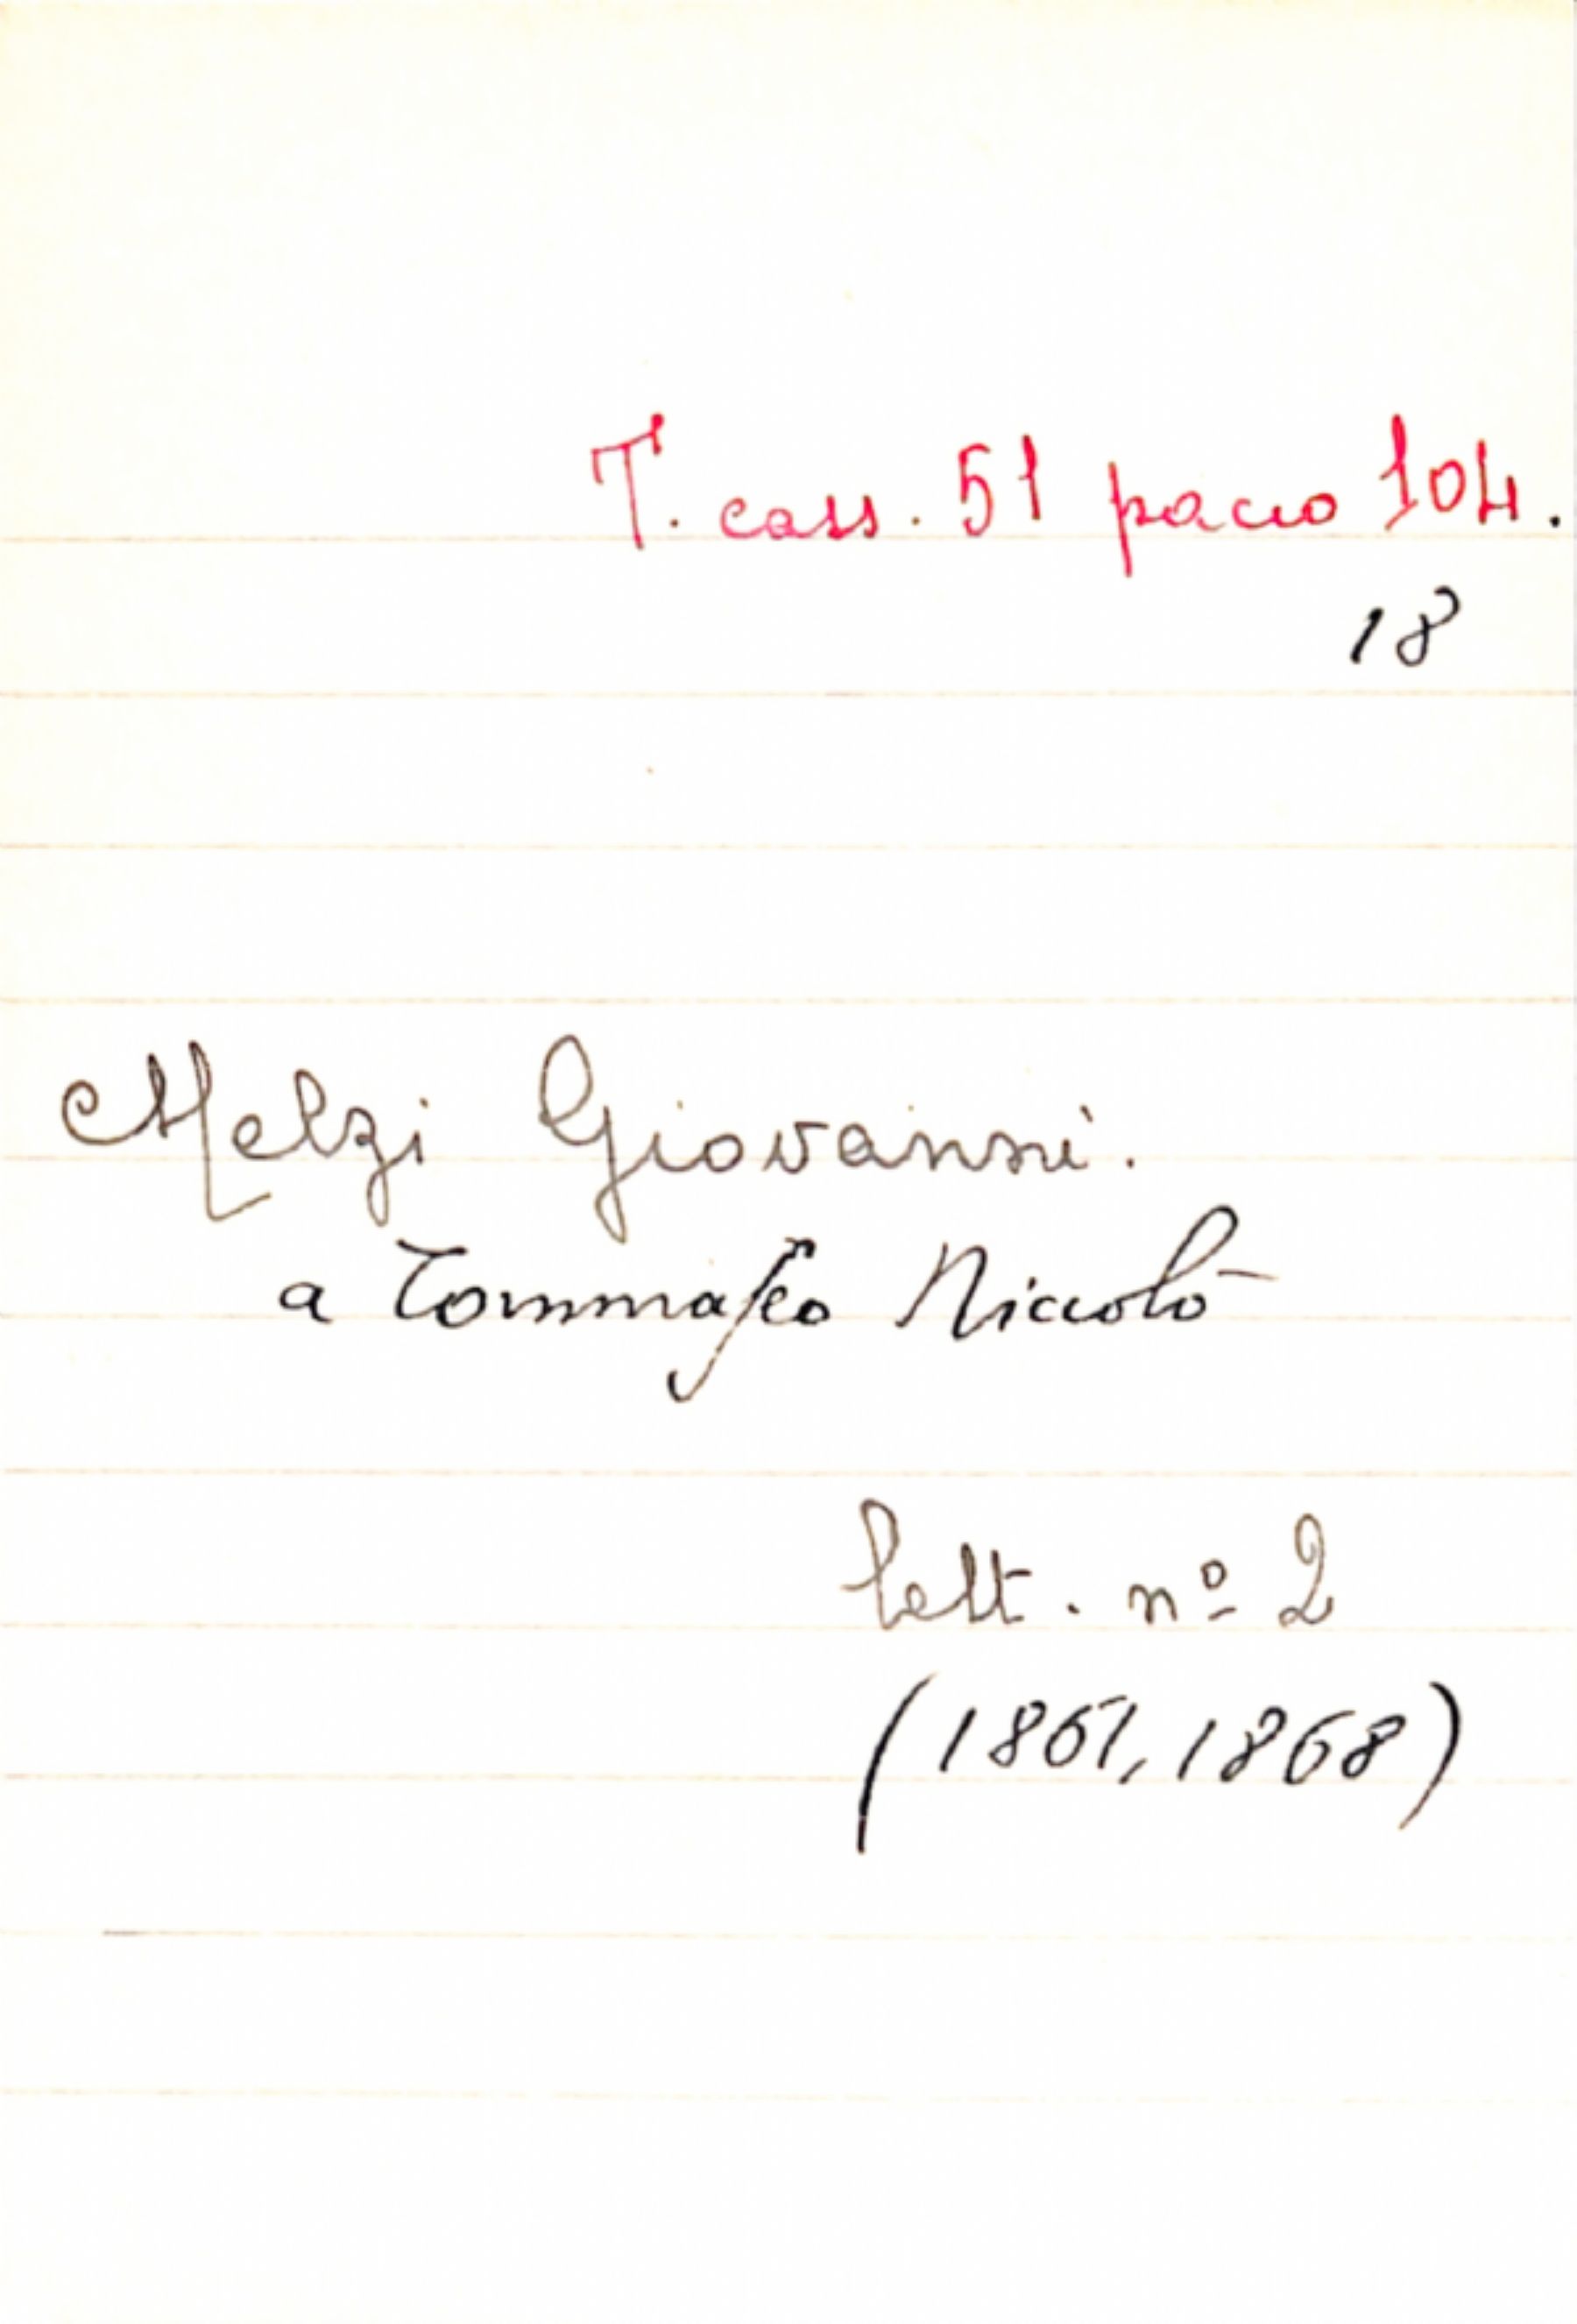 T. cass. 51 pacco 104.
18
Melzi Giovanni.
a Tommaseo Niccolò
lett. nº 2
(1861, 1868)